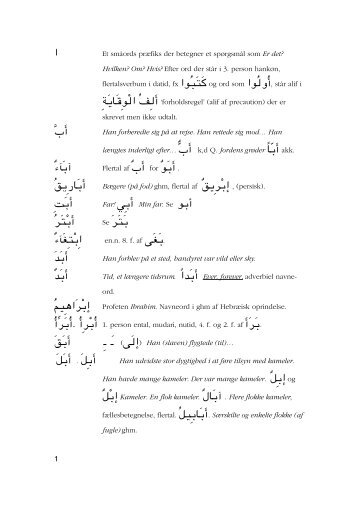 ا Et småords præfiks der betegner et spørgsmål som Er det?
Hvilken? Om? Hvis? Efter ord der står i 3. person hankøn,
flertalsverbum i datid, fx كَتَبُوا og ord som أُولُوا, står alif i
أَلِفُ الْوِقَايَةِ 'forholdsregel' (alif af precaution) der er
skrevet men ikke udtalt.
أَبَّ Han forberedte sig på at rejse. Han rettede sig mod… Han
længtes inderligt efter… أَبٌّ k,d Q. Jordens grøder أَبًّا akk.
آبَاءٌ Flertal af أَبٌ for أَبَوٌ .
أَبَارِيقُ Bægere (på fod) ghm, flertal af إِبْرِيقٌ , (persisk).
أَبَتِ Far! أَبِي Min far. Se أبو
أَبْتَرُ Se بَتَرَ
اِبْتِغَاءٌ en.n. 8. f, af بَغَى
أَبَدَ Han forblev på et sted, bandyret var vild eller sky.
أَبَدٌ Tid, et længere tidsrum. أَبَدًا Ever, forever, adverbiel navne-
ord.
إِبْرَاهِيمُ Profeten Ibrahim. Navneord i ghm af Hebraisk oprindelse.
أُبْرِأُ . أُبَرِّأُ 1. person ental, mudari, nutid, 4. f. og 2. f. af بَرَأَ.
أَبَقَ ـَ ـِ (إِلَى) Han (slaven) flygtede (til)…
أَبَلَ . أَبِلَ Han udvidste stor dygtighed i at føre tilsyn med kameler.
Han havde mange kameler. Der var mange kameler. إِبِلٌ og
إِبْلٌ Kameler. En flok kameler. آبَالٌ . Flere flokke kameler,
fællesbetegnelse, flertal. أَبَابِيلُ. Særskilte og enkelte flokke (af
fugle) ghm.
1